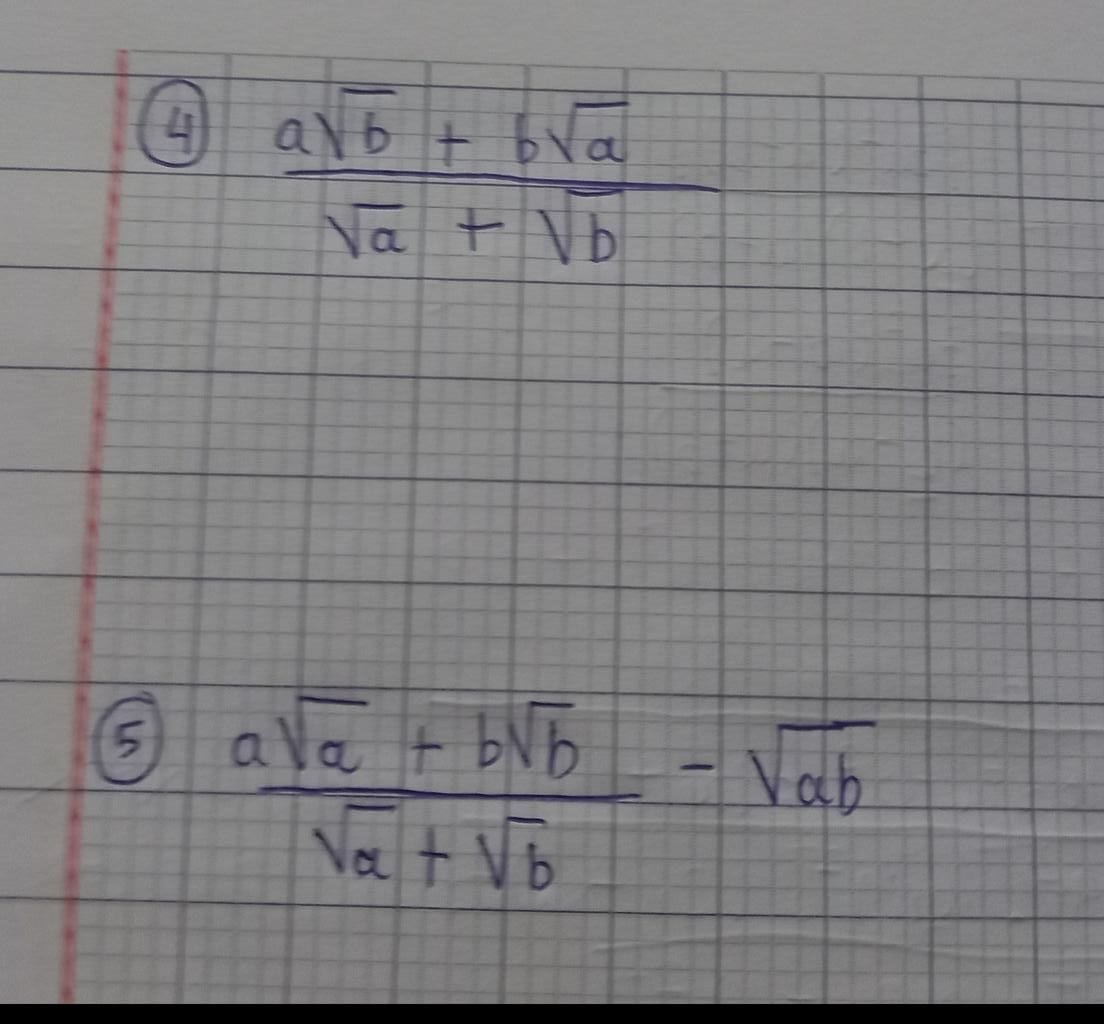 ④ a√b + b√a
√a + √b
⑤ a√a + b√b - √ab
√a + √b